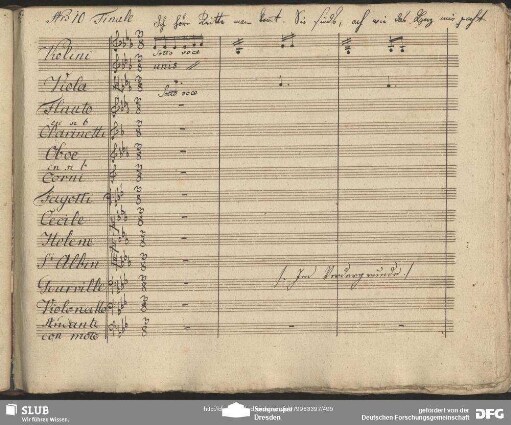 No 10 Finale Ich höre Tritte man kommt. Sie sinds, ach wie das Herz mir pocht
Violini
Sotto voce
unis
Viola
Sotto voce
Flauto
in B
Clarinetti
Oboe
in B
Corni
Fagotti
Cecile
Helene
St Albin
Gourville
/: Im Vordergrunde :/
Violoncello
Andante
con moto
SLUB
Wir führen Wissen.
Dresden
gefördert von der
Deutschen Forschungsgemeinschaft
DFG